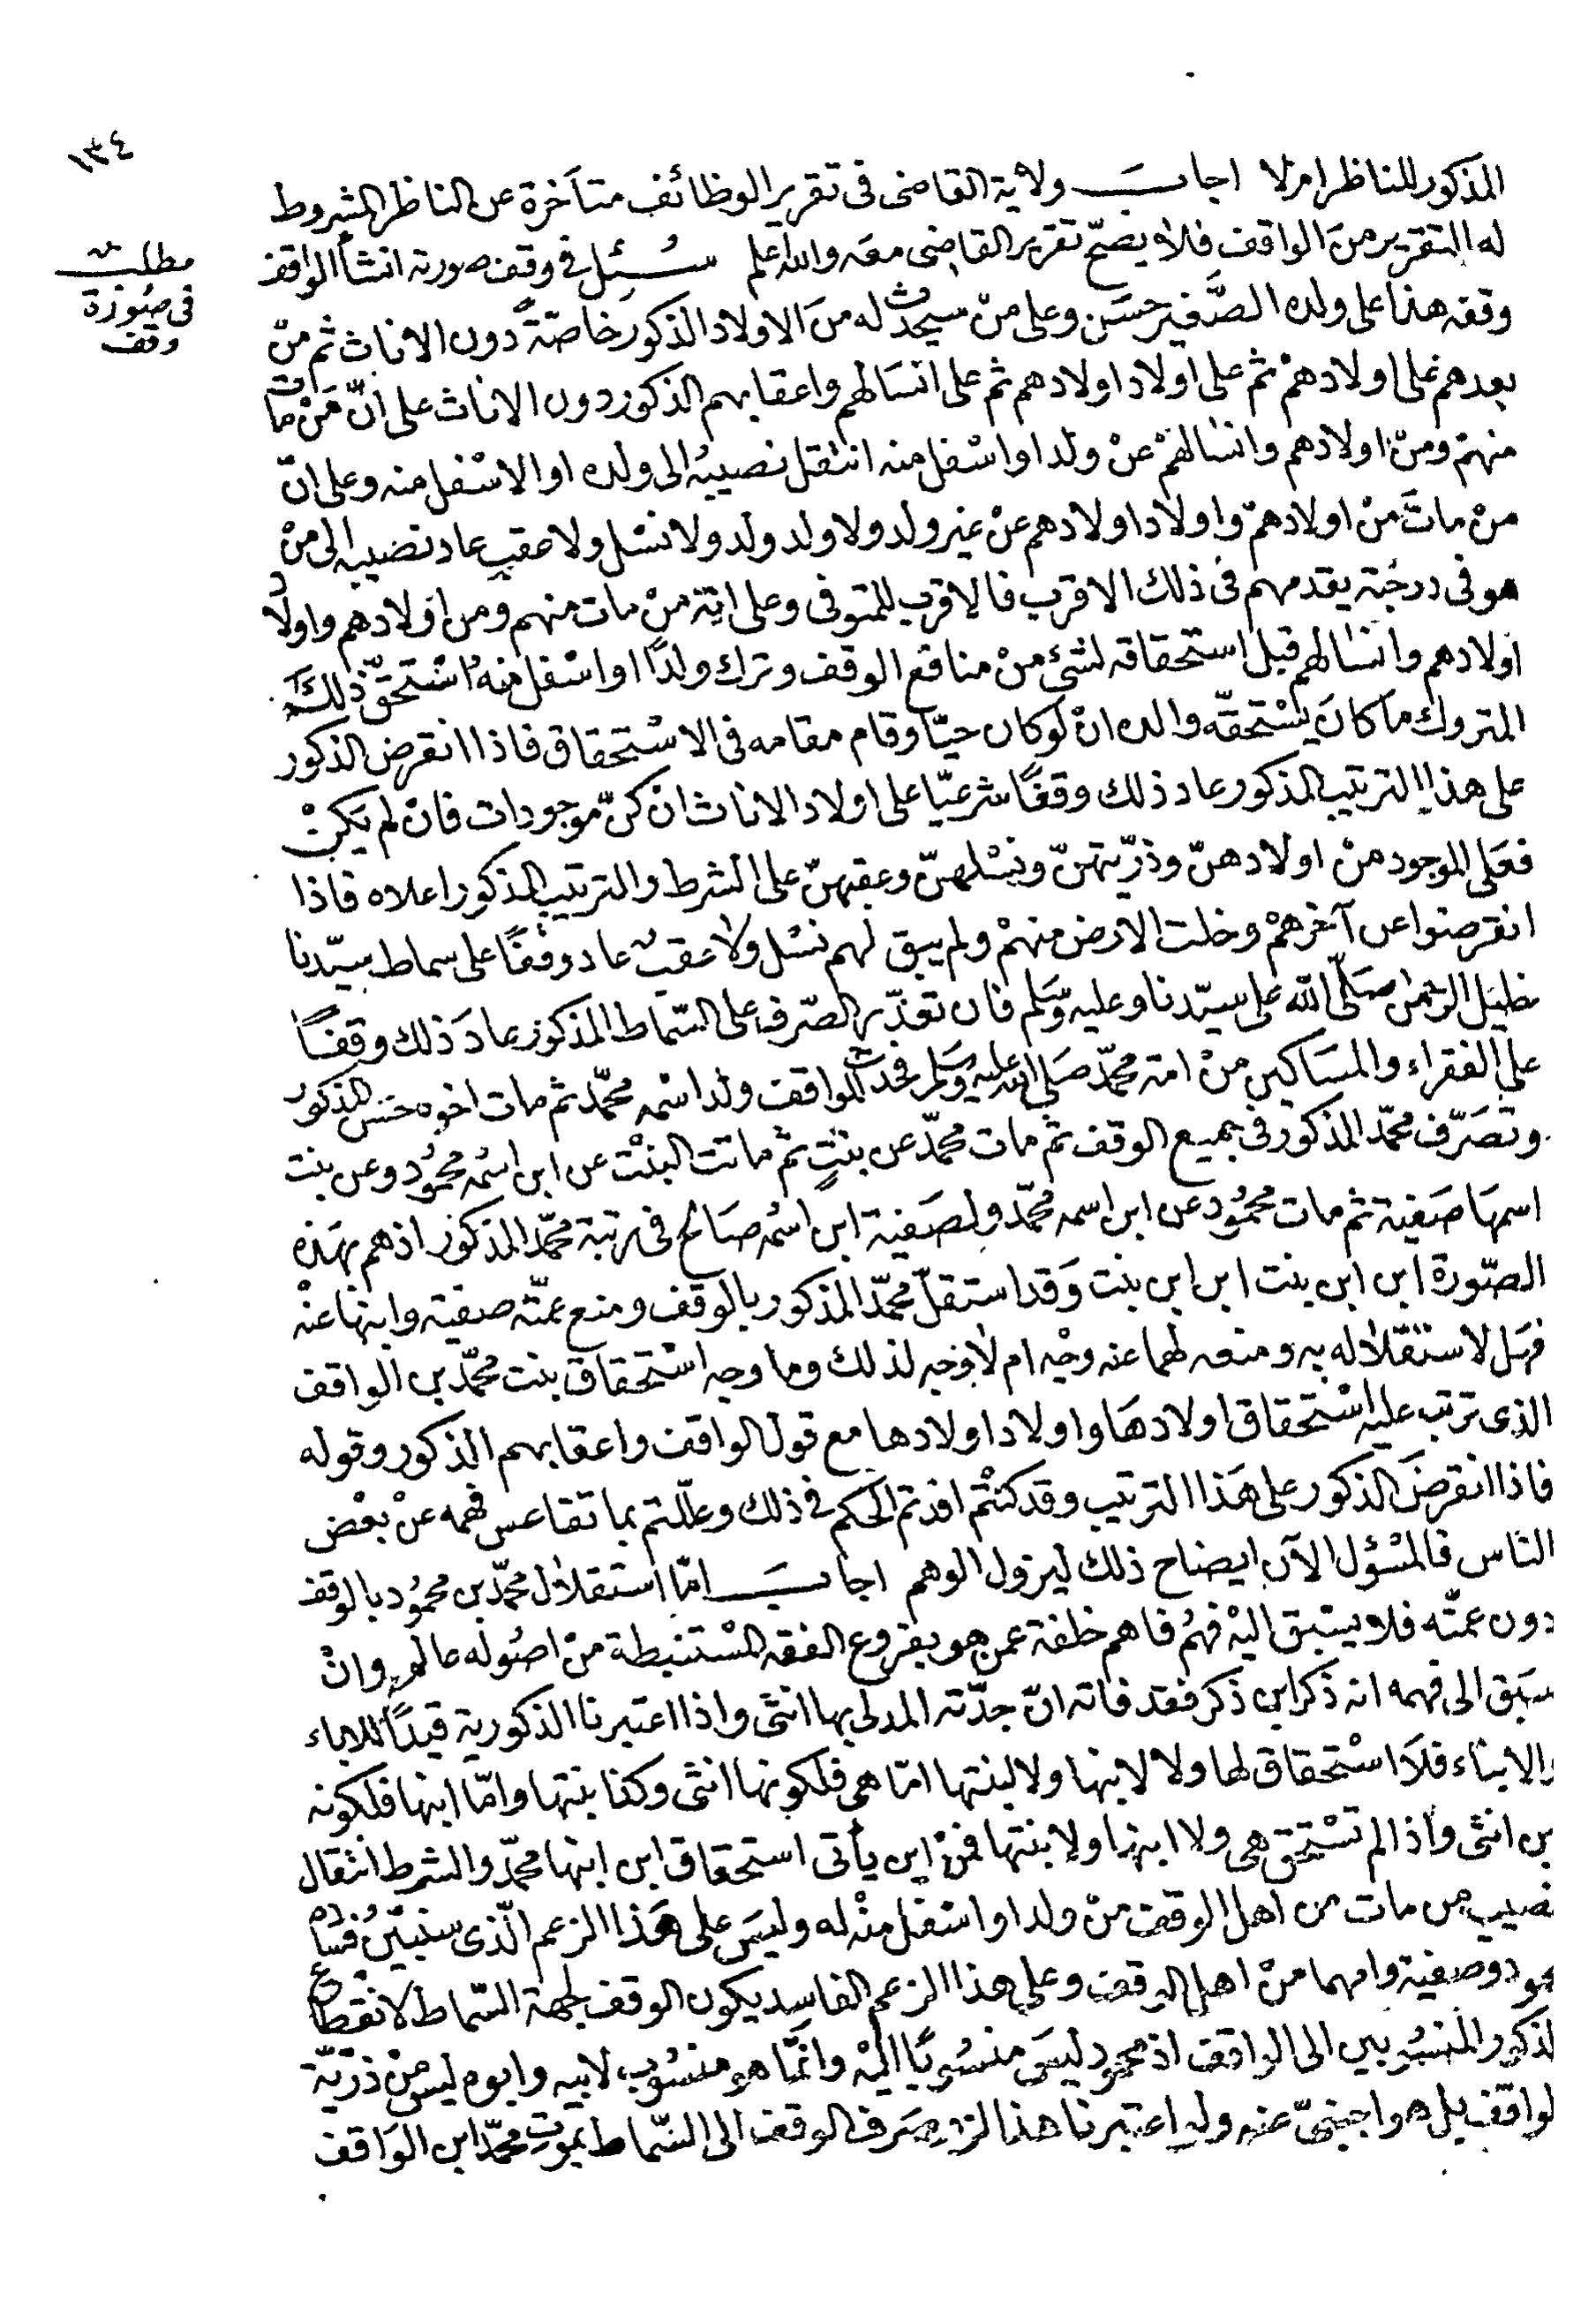 ١٣٤
المذكور للناظر ام لا اجاب ولاية القاضى فى تقرير الوظائف متأخرة عن الناظر المشروط
له التقرير من الواقف فلا يصحّ تقرير القاضى معه والله اعلم سُئِل فى وقف صورته انشأ الواقف
مطلب
فى صُورَة
وقف
وقفه هذا على ولده الصَّغير حسَن وعلى منْ سيحدث له منَ الاولاد الذكور خاصّةً دون الاناث ثم منْ
بعدهم على اولادهمْ ثم على اولاد اولادهم ثم على انسَالهم واعقابهم الذكور دون الاناث على انّ مَنْ مات
منهمْ ومنْ اولادهم وانسَالهمْ عنْ ولد او اسْفل منه انتقل نصيبهُ الى ولده او الاسْفل منه وعلى انّ
منْ ماتَ منْ اولادهمْ واولاد اولادهم عنْ غير ولد ولا ولد ولد ولا نسْل ولا عقبٍ عاد نصيبه الى منْ
هو فى درجته يقدم منهم فى ذلك الاقرب فالاقرب للمتوفى وعلى انّه منْ مات منهم ومن اولادهم واولاد
اولادهم وانسالهم قبل استحقاقه لشئ منْ منافع الوقف وترك ولدًا او اسْفل منهُ اسْتحقّ ذلكَ
المتروك ما كانَ يسْتحقّه والده انْ لو كان حيّا وقام مقامه فى الاسْتحقاق فاذا انقرض الذكور
على هذا الترتيب المذكور عاد ذلك وقفًا شرعيّا على اولاد الاناث انْ كنّ موجودات فانْ لم يكنْ
فعَلى الموجود منْ اولادهنّ وذرّيتهنّ ونسْلهنّ وعقبهنّ على الشرط والترتيب المذكور اعلاه فاذا
انقرضوا عن آخرهمْ وخلت الارض منهمْ ولم يبق لهم نسْل ولا عقبٌ عاد وقفًا على سماط سيّدنا
خليل الرحمن صَلّى الله على سيّدنا وعليه وسَلم فان تعذّر الصّرف على السّماط المذكور عادَ ذلك وقفًا
على الفقراء والمسَاكين منْ امة محمّد صَلى الله عليه وسَلم فحدث للواقف ولد اسْمه محمّد ثم مات اخوه حسَن المذكور
وتصَرّف محمّد المذكور فى جميع الوقف ثم مات محمّد عن بنتٍ ثم ماتت البنْت عن ابن اسْمه محمُود وعن بنت
اسمهَا صَفية ثم مات محمُود عن ابن اسمه محمّد ولصَفية ابن اسْمه صَالح فى مرتبة محمّد المذكور اذ هم بهَذه
الصّورة ابن ابن بنت ابن ابن بنت وَقد استقلّ محمّد المذكور بالوقف ومنع عمّته صفية وابنها عنْه
فهَل لاستقلاله به ومنعه لهما عنه وجْه ام لا وجه لذلك وما وجه اسْتحقاق بنت محمّد بن الواقف
الذى ترتب عليه اسْتحقاق اولادهَا واولاد اولادها مع قول الواقف واعقابهم الذكور وقوله
فاذا انقرضَ الذكور على هَذا الترتيب وقد كنْتم افدتم الحكم فى ذلك وعلّلتم بما تقاعس فهمه عنْ بعْض
الناس فالمسْؤل الآن ايضاح ذلك ليزول الوهم اجاب امّا استقلال محمّد بن محمُود بالوقف
دون عمّته فلا يسْبق اليْه فهْمُ فاهم خلفة عمن هو بفروع الفقه المسْتنبطة منْ اصُوله عالمٍ وانْ
سبَق الى فهمه انه ذكر ابن ذكر فقد فاته انّ جدّته المدلى بها انثى واذا اعتبرنا الذكورية قيدًا للاباء
والابناء فلَا اسْتحقاق لها ولا لابنها ولا لبنتها امّا هى فلكونها انثى وكذا بنتها وامّا ابنها فلكونه
بن انثى واذا لم تسْتحق هى ولا ابنها ولا بنتها فمنْ اين يأتى استحقاق ابن ابنها محمّد والشرط انتقال
نصيب من مات من اهل الوقف منْ ولد او اسفل منْه له وليسَ على هَذا الزعم الّذى سنبيّن فسَاده
محمود وصفية وامهما منْ اهل الوقف وعلى هذا الزعم الفاسد يكون الوقف لجهة السّماط لانقطاع
لذكور المنسُوبين الى الواقف اذ محمود ليسَ منسُوبًا اليْه وانّما هو منسُوب لابيه وابوه ليس منْ ذرّيّة
لواقف بل هو اجنبىّ عنه ولو اعتبرنا هذا لزم صَرف الوقف الى السّماط بموت محمّد ابن الوَاقف